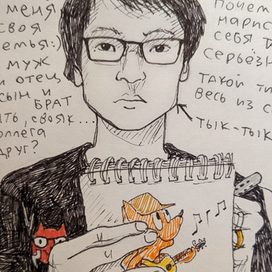 меня
своя
семья:)
муж
и отец
сын и
БРАТ
ть, свояк...
друг?
нарис
себя т
серьёзн
Такой ти
весь из с
тык-тык